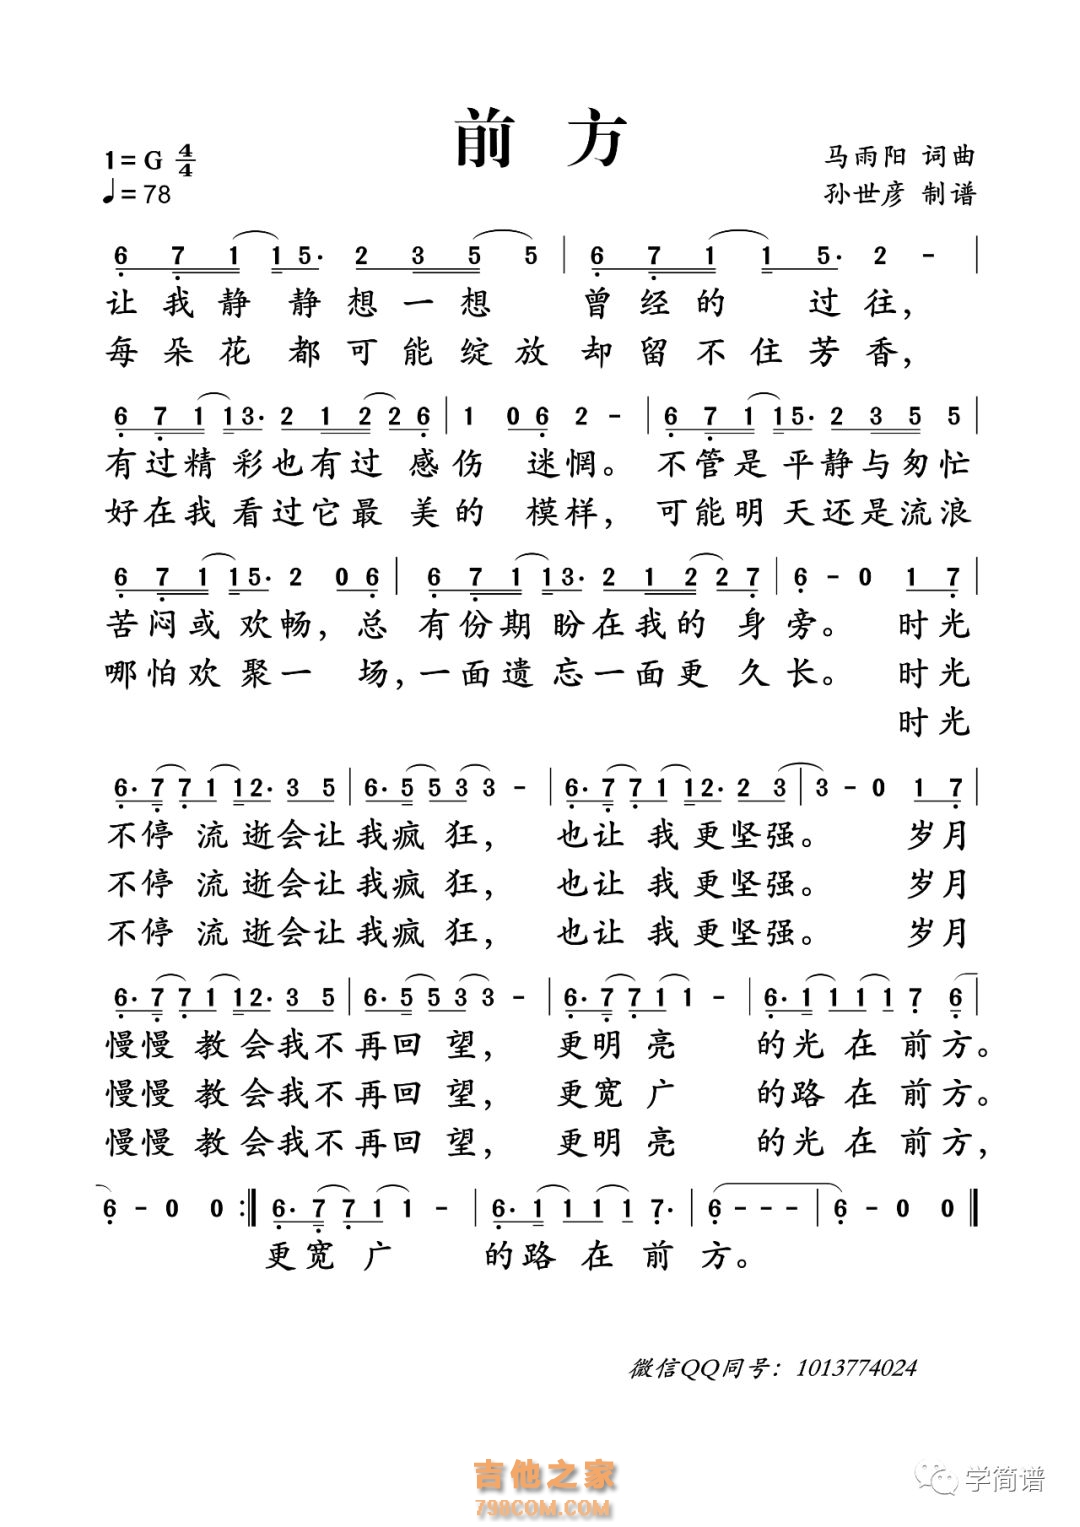 前 方
1= G 4/4
♩= 78
马雨阳 词曲
孙世彦 制谱
6 7 1 1 5· 2 3 5 5 | 6 7 1 1 5· 2 - |
让我静 静想一想 曾经的 过往，
每朵花 都可能绽放却留不住芳香，
6 7 1 1 3· 2 1 2 2 6 | 1 0 6 2 - | 6 7 1 1 5· 2 3 5 5 |
有过精彩也有过 感伤 迷惘。 不管是平静与匆忙
好在我看过它最 美的 模样， 可能明天还是流浪
6 7 1 1 5· 2 0 6 | 6 7 1 1 3· 2 1 2 2 7 | 6 - 0 1 7 |
苦闷或 欢畅，总 有份期盼在我的 身旁。 时光
哪怕欢 聚一 场，一面遗忘一面更 久长。 时光
时光
6· 7 7 1 1 2· 3 5 | 6· 5 5 3 3 - | 6· 7 7 1 1 2· 2 3 | 3 - 0 1 7 |
不停 流逝会让我疯 狂， 也让 我更坚强。 岁月
不停 流逝会让我疯 狂， 也让 我更坚强。 岁月
不停 流逝会让我疯 狂， 也让 我更坚强。 岁月
6· 7 7 1 1 2· 3 5 | 6· 5 5 3 3 - | 6· 7 7 1 1 - | 6· 1 1 1 1 7 6 |
慢慢 教会我不再回 望， 更明 亮 的光在前方。
慢慢 教会我不再回 望， 更宽 广 的路在前方。
慢慢 教会我不再回 望， 更明 亮 的光在前方，
6 - 0 0 :‖ 6· 7 7 1 1 - | 6· 1 1 1 1 7· | 6 - - - | 6 - 0 0 ‖
更宽 广 的路在前方。
微信QQ同号：1013774024
吉他之家
798COM.COM
学简谱